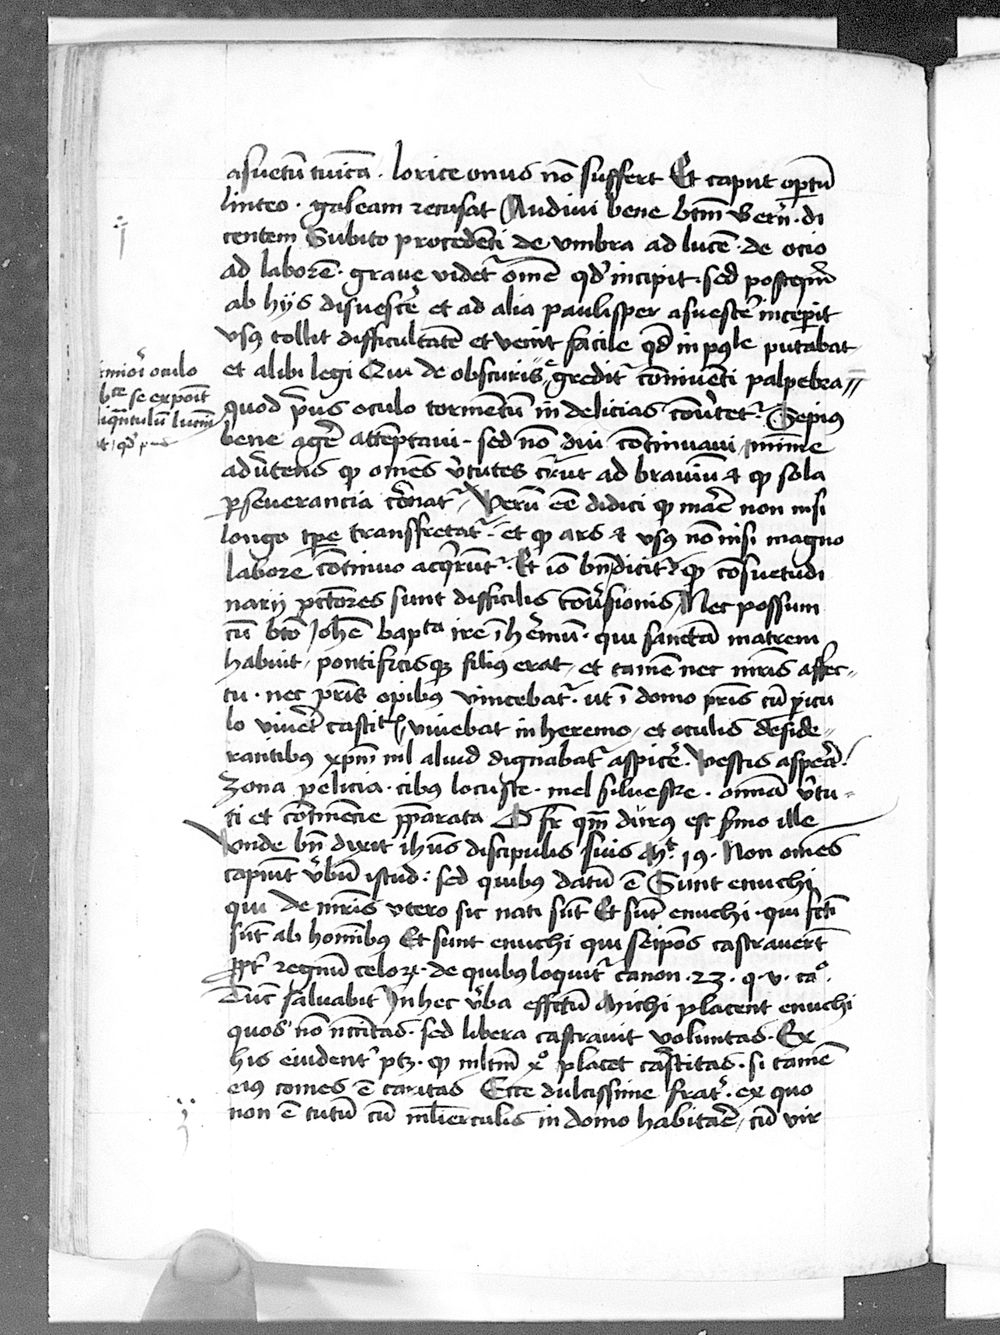 asuetū tunicā · lorice onus nō suffert Et caput optū
linteo · galeam recusat Audiui bene btm̄ Bern̄ · di
centem Subito procedēti de vmbra ad lucē · de ocio
ad laborē · graue videt᷑ om̄e qd̓ incipit · sed postqm̄
ab hijs disuescẽ et ad alia paulisper asuescẽ inceperit
vsꝰ tollit difficultatē et venit facile qd̓ īpossible putabat᷑
et alibi legi Qui de obscuris egredit᷑ cōniuēti palpebra
quod prius oculo tormentū in delicias cōuertet᷑ · Sepius
bene agẽ attēptaui · sed nō diu cōtinuaui minime
aduertens ꝙ om̄es v̓tutes currūt ad brauiū ⁊ ꝙ sola
perseuerancia coronat᷑ Verū eē didici ꝙ marē non nisi
longo tpe transfretat᷑ · et ꝙ ars ⁊ vsꝰ nō nisi magno
labore cōtinuo acqrūt᷑ · Et iō bn̄ dicit᷑ · ꝙ cōsuetudi
narij pctores sunt difficilis cōu̓sionis Nec possum
cū btō Johē bapta ire ī hēmū · qui sanctā matrem
habuit pontificisqꝫ filius erat et tamē nec mr̄is affec
tu · nec pr̄is opibus vincebat᷑ · ut ī domo pr̄is cū pericu
lo viuẽt castitatis viuebat in heremo et oculis deside
rantibus xp̄m nil aliud dignabat᷑ aspicẽ · Vestis aspera ·
zona pelicia · cibus locuste · mel siluestre · omnia v̓tu
ti et cōtinēcie pparata O fr̄ qm̄ durus est s̓mo ille
Vnde bn̄ dixit ih̄us discipulis suis Mt 19 · Non om̄es
capiunt v̓bū istud : sed quibus datū ē Sunt enuchi
qui de mr̄is vtero sic nati sūt Et sūt enuchi · qui fcti
sūt ab hom̄ibus Et sunt enuchi qui seipos castrauerūt
ppt̓ regnū celoꝝ · de quibus loquit᷑ canon · 23 · q · v · cao ·
Tūc saluabit᷑ In hec v̓ba effctū Michi placent enuchi
quos nō nccitas · sed libera castrauit voluntas · Ex
his euident̓ ptꝫ · ꝙ mltm̄ xo placet castitas · si tamē
eius comes ē caritas Ecce dulcissime frat̓ · ex quo
non ē tutū cū mlierculis in domo habitarē cū vir
oculo
se exponit
liqntulū lucm̄